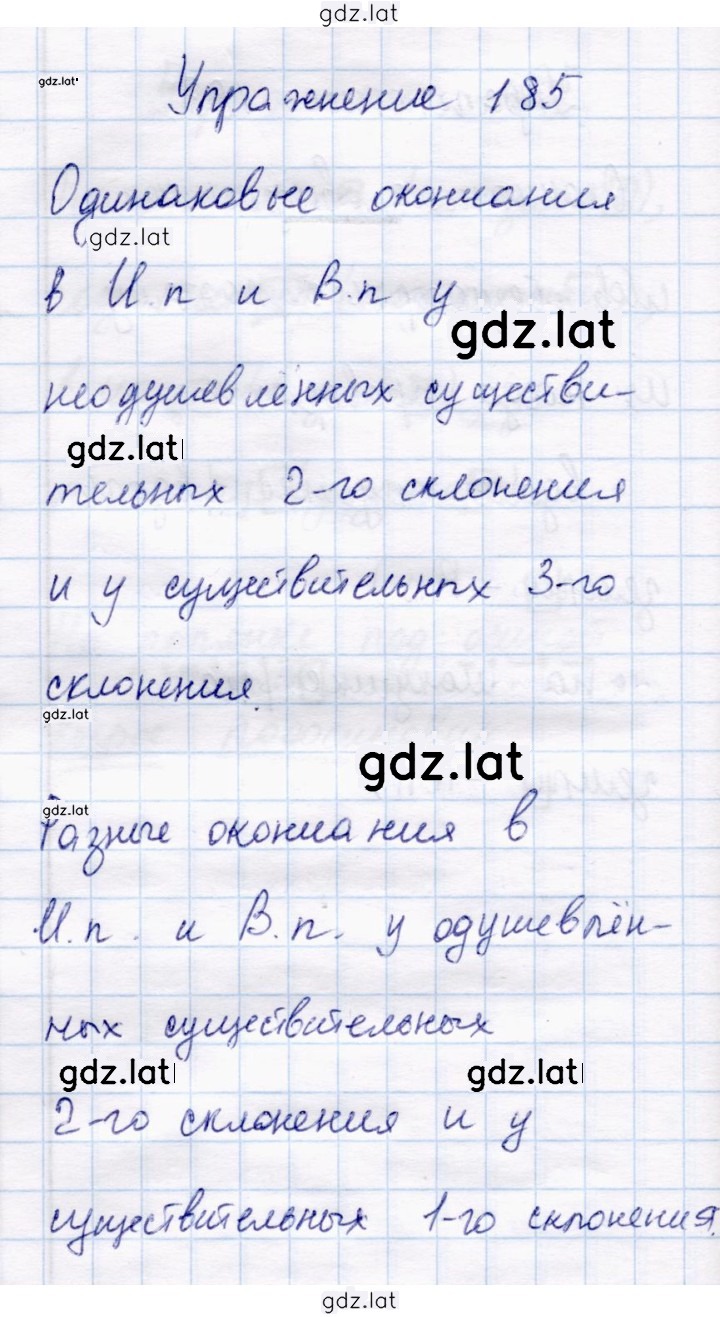 gdz.lat
gdz.lat
Упражнение 185
Одинаковые окончания
gdz.lat
в И.п и В.п у
gdz.lat
неодушевлённых существи-
gdz.lat
тельных 2-го склонения
и у существительных 3-го
склонения.
gdz.lat
gdz.lat
gdz.lat
Разные окончания в
И.п. и В.п. у одушевлён-
ных существительных
gdz.lat gdz.lat
2-го склонения и у
существительных 1-го склонения.
gdz.lat